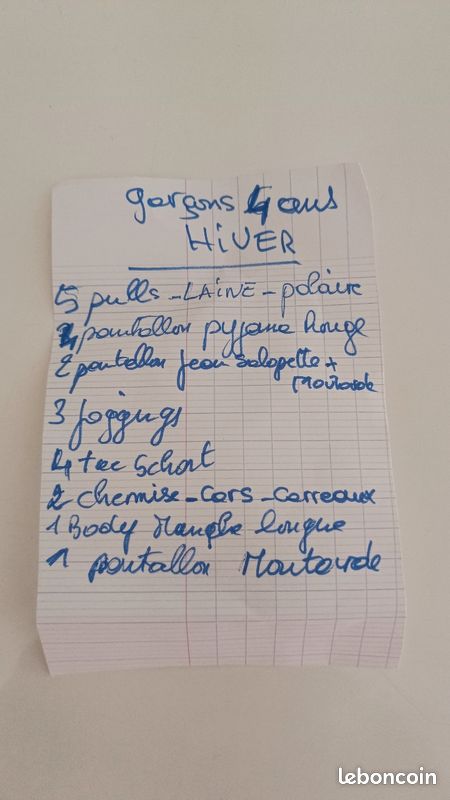 garçons 4 ans
HiVER
5 pulls - LAiNE - polaire
pantallon pyjama Rouge
2 pantallon jean salopette +
Moutarde
3 joggings
4 tee Schort
2 chemise - Cars - Carreaux
1 Body Manche longue
1 pantallon Moutarde
leboncoin